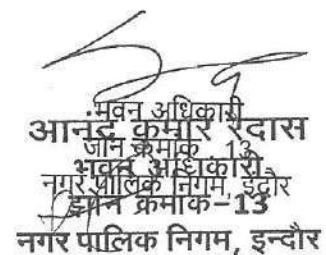 भवन अधिकारी
आनंद कुमार रैदास
जोन क्रमांक . 13
भवन अधिकारी
नगर पालिक निगम, इंदौर
झोन क्रमांक–13
नगर पालिक निगम, इन्दौर